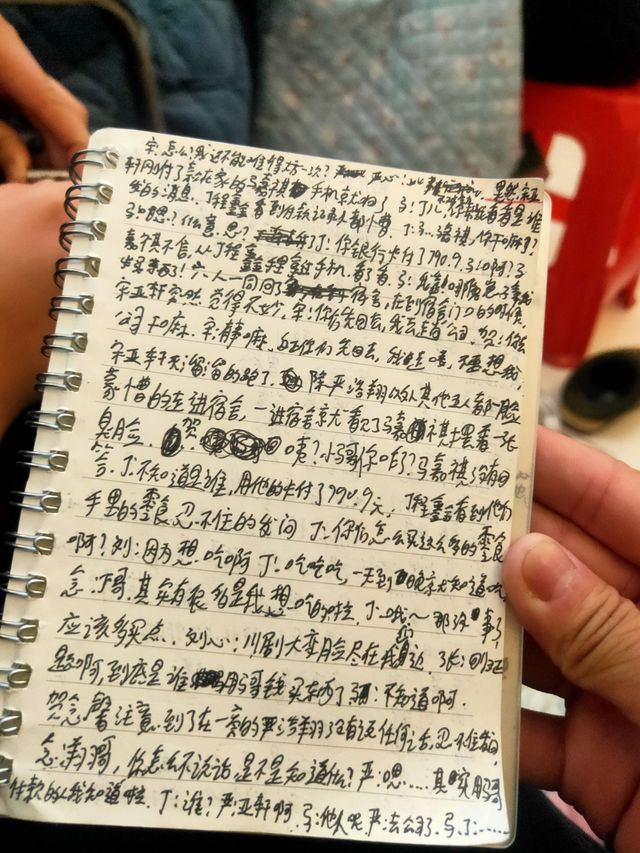 宋:怎么?我还不能难得坊一次?
轩刚付了款在家的马嘉祺手机就响了 马:丁儿,你帮我看看是谁
发的消息,丁程鑫看到付款记录人都懵 丁:马嘉祺,你干嘛了?
马:嗯?什么意思? 丁:你银行卡付了790.9 马:啊?马
嘉祺不信,从丁程鑫手里拿过手机看了看 马:
买东西了!六人一同回了宿舍,在到宿舍门口的时候
宋亚轩突然觉得不妙,宋:你们先回去,我去走有公司。贺:你去
公司干嘛,宋:有事嘛,你们先回去,
宋亚轩灰溜溜的跑了 除严浩翔以外其他五人都一脸
豪懵的走进宿舍,一进宿舍就看见了马嘉祺摆着一张
臭脸,贺:咦?小马哥你咋了?马嘉祺没有回
答,丁:不知道是谁,用他的卡付了790.9元,丁程鑫看到他们
手里的零食忍不住的发问 丁:你们怎么买这么多的零食
啊?刘:因为想吃啊 丁:吃吃吃,一天到晚就知道吃
贺:丁哥,其实有很多是我想吃的啦,丁:哦~那没事了
应该多买点,刘心:川剧大变脸尽在我身边,张:回归正
题啊,到底是谁用马哥钱买东西了 马:不知道啊,
贺警注意到了在一旁的严浩翔没有说任何话,忍不住发问
贺:翔哥,你怎么不说话是不是知道什么?严:嗯……其实用马哥
付款的人我知道啦,丁:谁?严:亚轩啊 马:他人呢 严:去公司了,马、丁:……